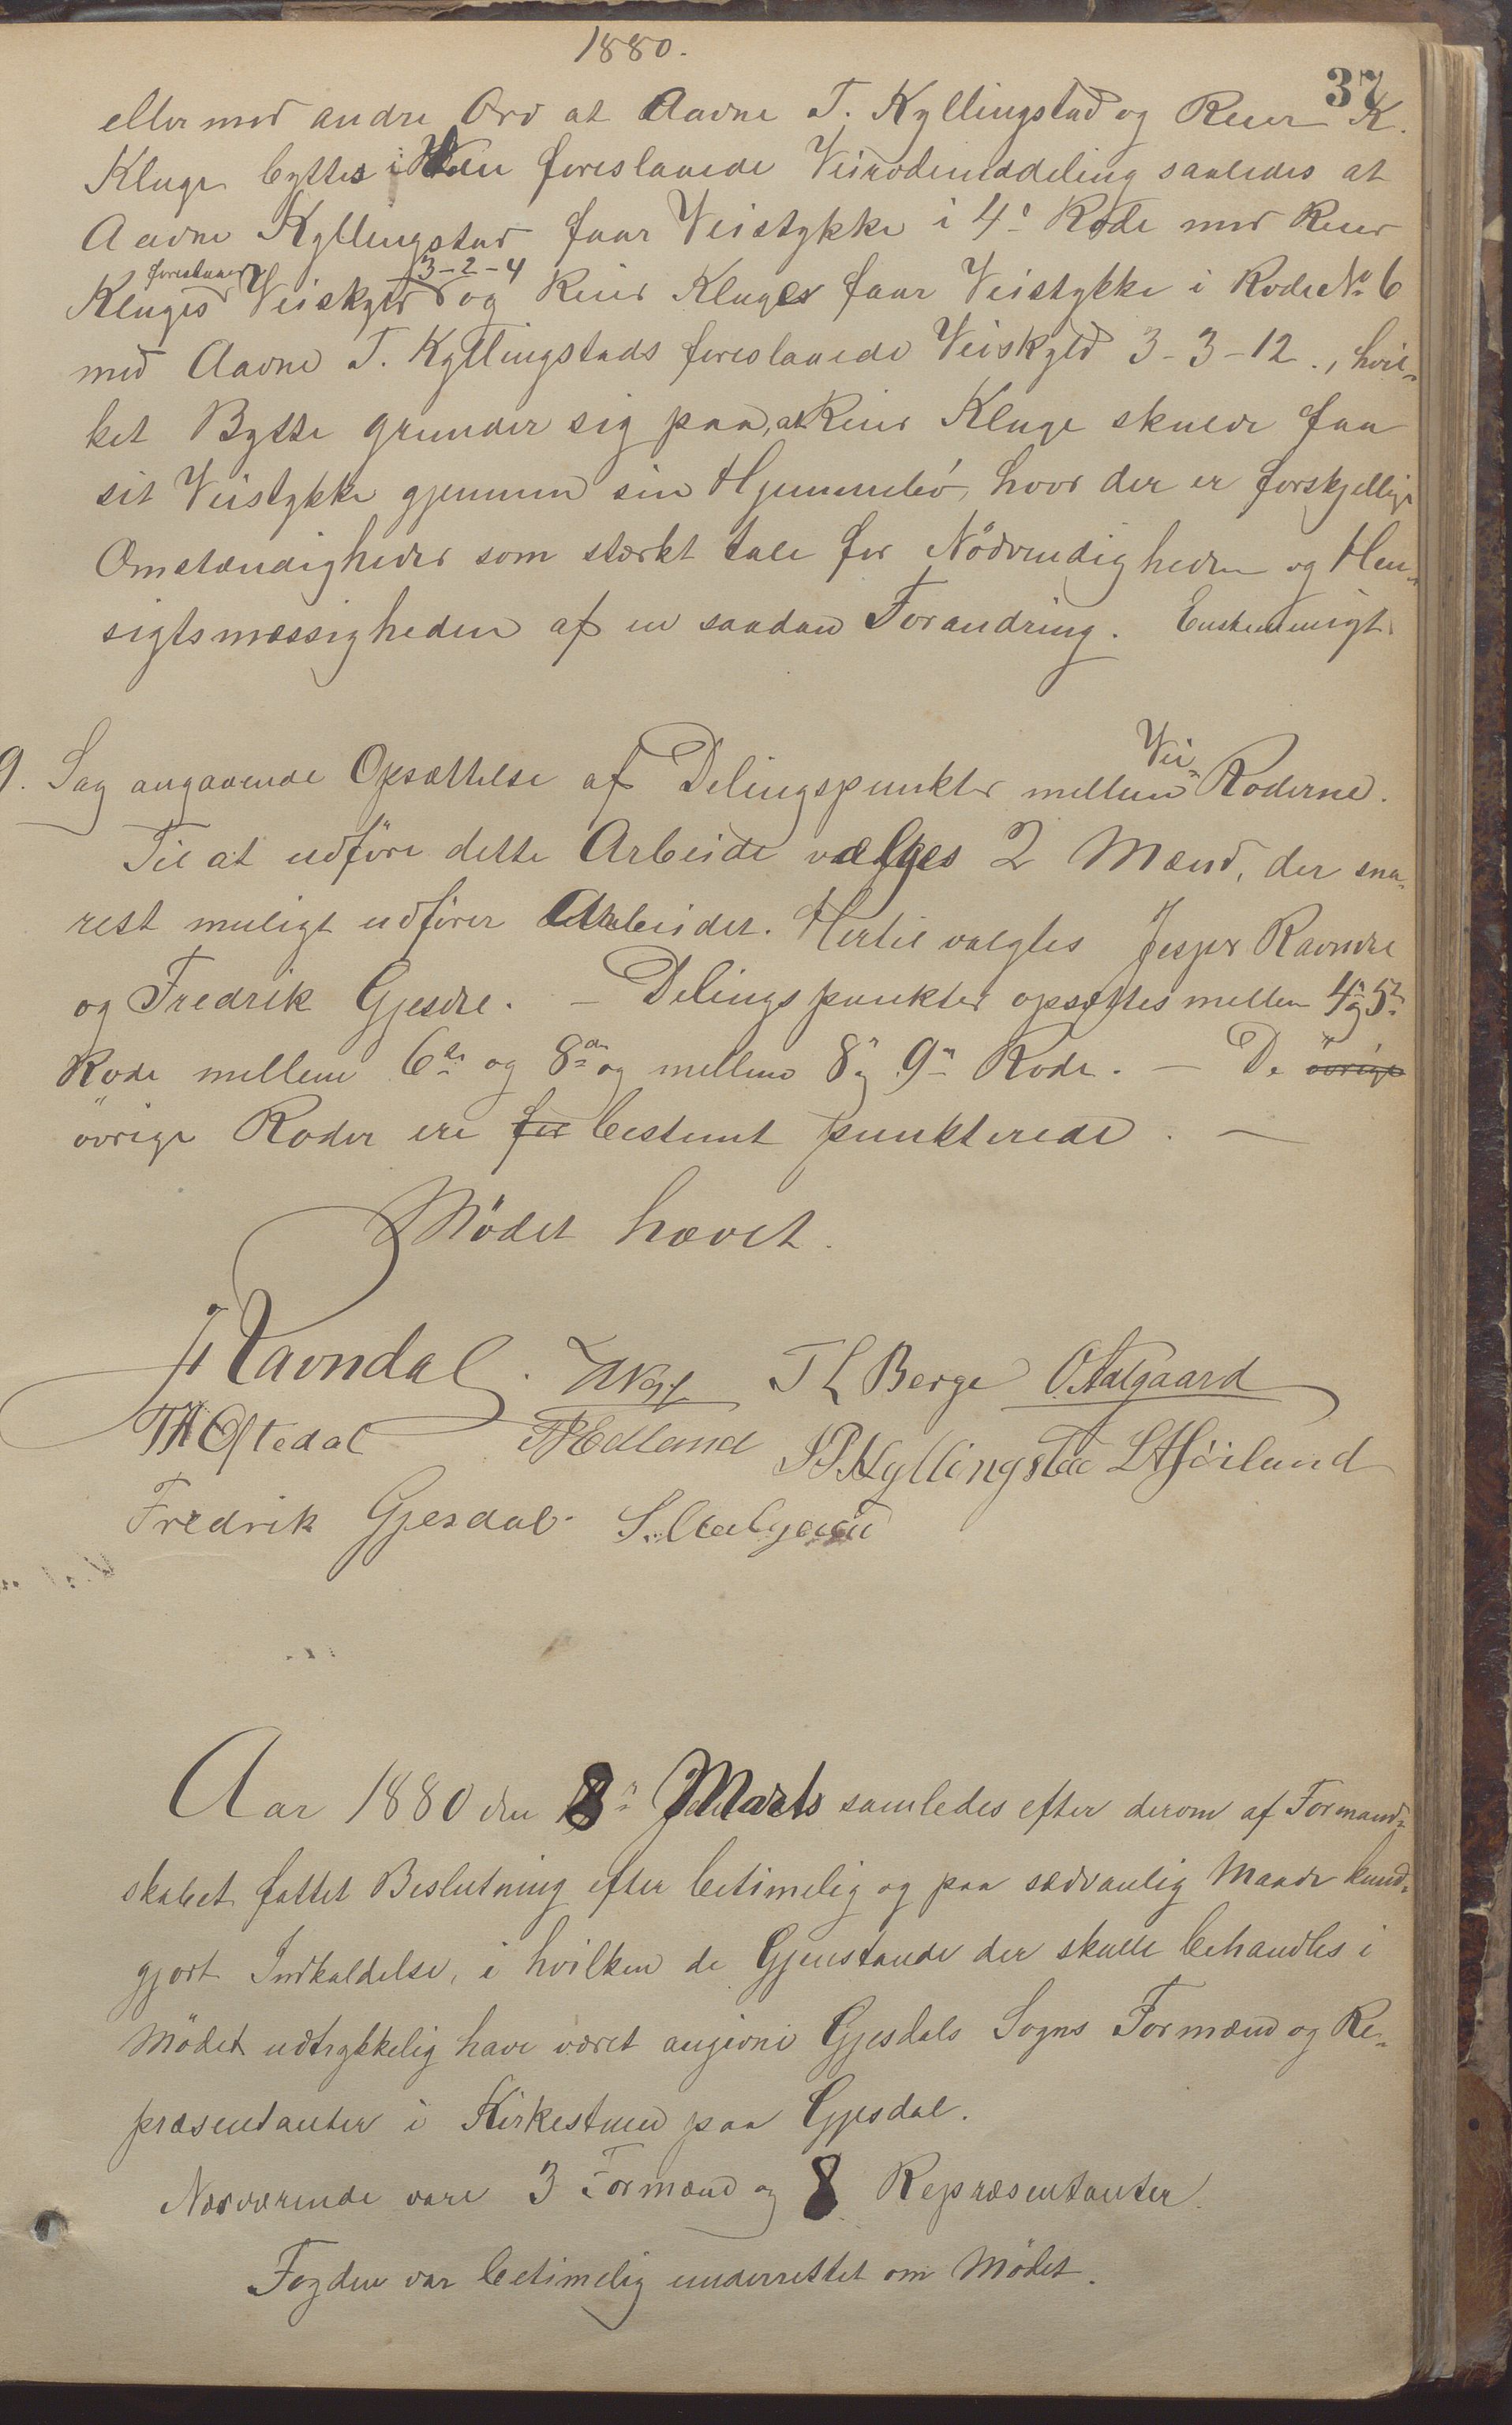 1880.
37
eller med andre Ord at Aadne T. Kyllingstad og Reier K.
Kluge byttes i den foreslaaede Veirodeinddeling saaledes at
Aadne Kyllingstad faar Veistykke i 4de Rode med Reier
foreslaaede 3-2-4
Kluges Veiskyld og Reier Kluges faar Veistykke i Rode No 6
med Aadne T. Kyllingstads foreslaaede Veiskyld 3-3-12., hvil-
ket Bytte grunder sig paa, at Reier Kluge skulde faa
sit Veistykke gjennem sin Hjemmebö, hvor der er forskjellige
Omstændigheder som stærkt tale for Nödvendigheden og Hen-
sigtsmæssigheden af en saadan Forandring. Enstemmigt.
9. Sag angaaende Opsættelse af Delingspunkter mellem Vei-Roderne.
Til at udföre dette Arbeide vælges 2 Mænd, der sna-
rest muligt udfører Arbeidet. Hertil valgtes Jesper Ravndal
og Fredrik Gjesdal. - Delingspunkter opsættes mellem 4de og 5te
Rode mellem 6te og 8de og mellem 8de og 9de Rode. - De övrige
övrige Roder ere for bestemt punkterede. -
Mödet hævet.
J Ravndal. T L Berge O. Aalgaard
TH Oftedal T Edland S P. Kyllingstad L A Höiland
Fredrik Gjesdal. S. Aalgaard
Aar 1880 den 8de Marts samledes efter derom af Formand-
skabet fattet Beslutning efter betimelig og paa sædvanlig Maade kund-
gjort Indkaldelse, i hvilken de Gjenstande der skulle behandles i
Mödet udtrykkelig have været angivne Gjesdals Sogns Formænd og Re-
præsentanter i Kirkestuen paa Gjesdal.
Nærværende vare 3 Formænd og 8 Repræsentanter.
Fogden var betimelig underrettet om Mödet.